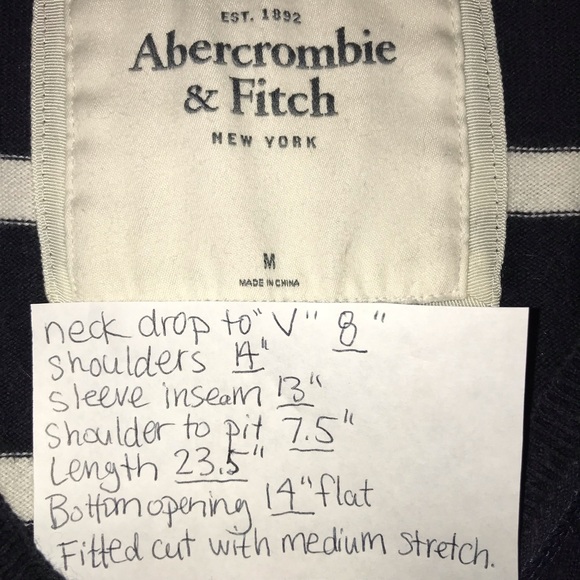 EST. 1892
Abercrombie
& Fitch
NEW YORK
M
MADE IN CHINA
neck drop to "V" 8"
shoulders 14"
sleeve inseam 13"
shoulder to pit 7.5"
Length 23.5"
Bottom opening 14" flat
Fitted cut with medium stretch.